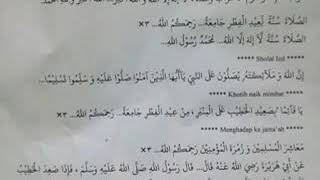 الصَّلَاةَ سُنَّةً لِعِيدِ الْفِطْرِ جَامِعَةً... رَحِمَكُمُ اللهُ... ×٣
الصَّلَاةَ سُنَّةً لَا إِلٰهَ إِلَّا اللهُ... مُحَمَّدٌ رَسُولُ اللهِ...
***** Sholat Ied *****
إِنَّ اللهَ وَ مَلَائِكَتَهُ يُصَلُّونَ عَلَى النَّبِيِّ يَاأَيُّهَا الَّذِينَ آمَنُوا صَلُّوا عَلَيْهِ وَ سَلِّمُوا تَسْلِيمًا...
***** Khotib naik mimbar *****
الْخَطِيبُ عَلَى الْمِنْبَرِ، مِنْ عِيدِ الْفِطْرِ جَامِعَةً... رَحِمَكُمُ اللهُ...
***** Menghadap ke jama'ah *****
مَعَاشِرَ الْمُسْلِمِينَ وَ زُمْرَةَ الْمُؤْمِنِينَ رَحِمَكُمُ اللهُ... ×٣
عَنْ أَبِي هُرَيْرَةَ رَضِيَ اللهُ عَنْهُ قَالَ... قَالَ رَسُولُ اللهِ صَلَّى اللهُ عَلَيْهِ وَسَلَّمَ، فَإِذَا صَعِدَ الْخَطِيبُ